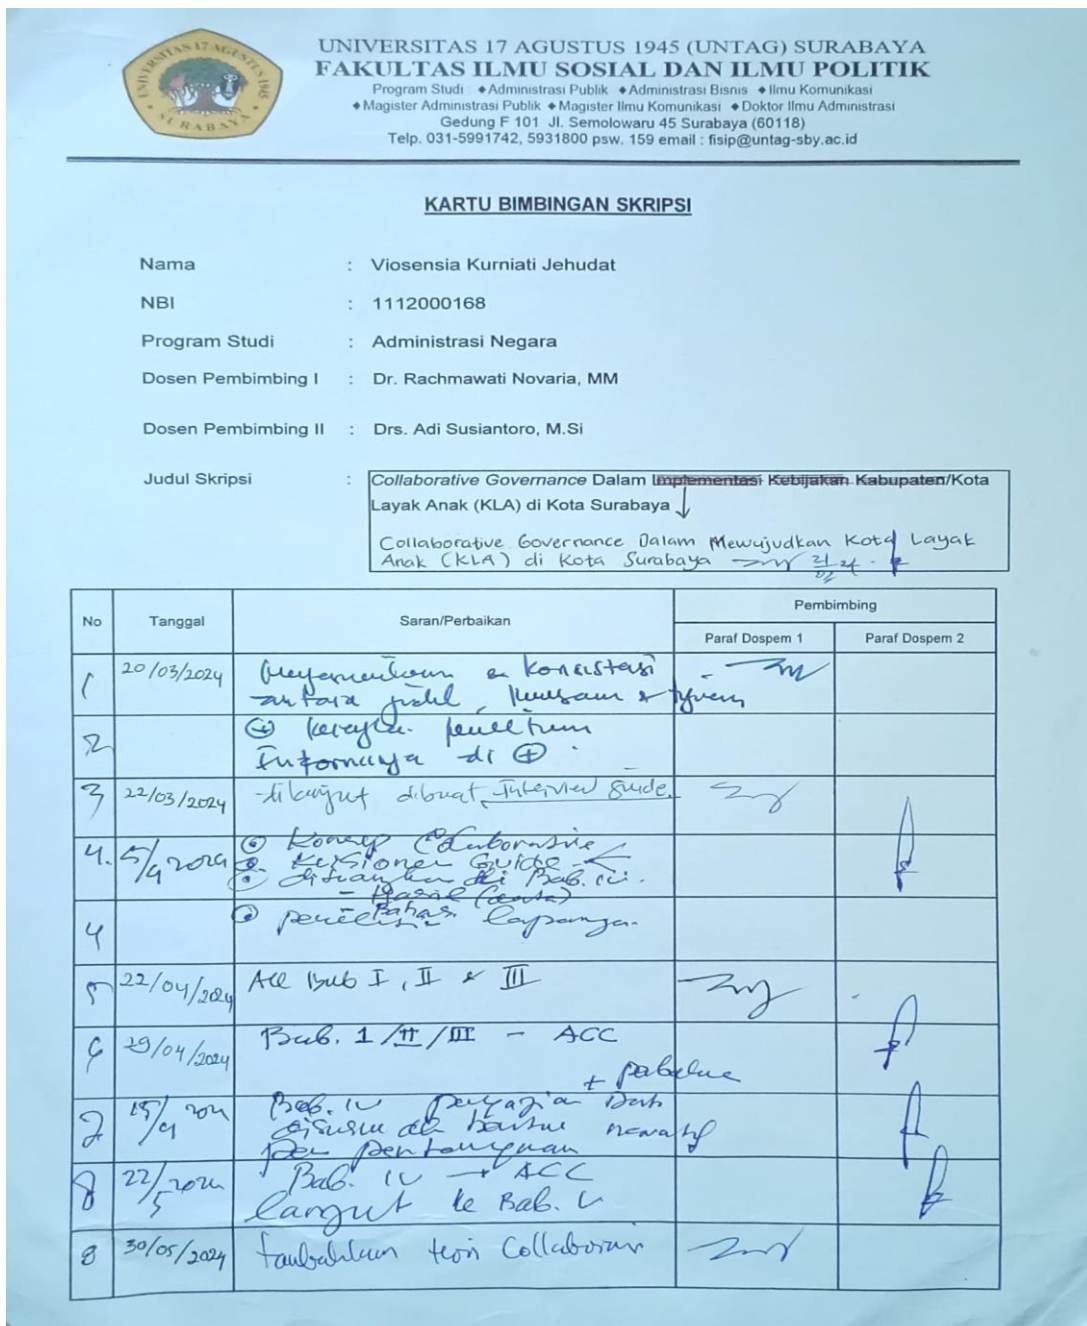 UNIVERSITAS 17 AGUSTUS 1945
SURABAYA
UNIVERSITAS 17 AGUSTUS 1945 (UNTAG) SURABAYA
FAKULTAS ILMU SOSIAL DAN ILMU POLITIK
Program Studi : ◆Administrasi Publik ◆Administrasi Bisnis ◆Ilmu Komunikasi
◆Magister Administrasi Publik ◆Magister Ilmu Komunikasi ◆Doktor Ilmu Administrasi
Gedung F 101 Jl. Semolowaru 45 Surabaya (60118)
Telp. 031-5991742, 5931800 psw. 159 email : fisip@untag-sby.ac.id
KARTU BIMBINGAN SKRIPSI
Nama : Viosensia Kurniati Jehudat
NBI : 1112000168
Program Studi : Administrasi Negara
Dosen Pembimbing I : Dr. Rachmawati Novaria, MM
Dosen Pembimbing II : Drs. Adi Susiantoro, M.Si
Judul Skripsi : Collaborative Governance Dalam Implementasi Kebijakan Kabupaten/Kota
Layak Anak (KLA) di Kota Surabaya
Collaborative Governance Dalam Mewujudkan Kota Layak
Anak (KLA) di Kota Surabaya
No Tanggal Saran/Perbaikan Pembimbing
Paraf Dospem 1 Paraf Dospem 2
1 20/03/2024 konsistasi
antara judul,
2
di
3 22/03/2024 dibuat Interview Guide
4. 5/4 2024 Konsep Collaborative
Kuisioner Guide
di Bab. IV.
- Hasil (data)
Bahas.
4 lapangan
5 22/04/2024 Acc Bab I, II & III
6 29/04/2024 Bab. 1/II/III - ACC
+
7 Bab. IV penyajian Data
disusun
pertanyaan
8 22/5 2024 Bab. IV → ACC
langut ke Bab. V
8 30/05/2024 tambahkan teori Collaborasi